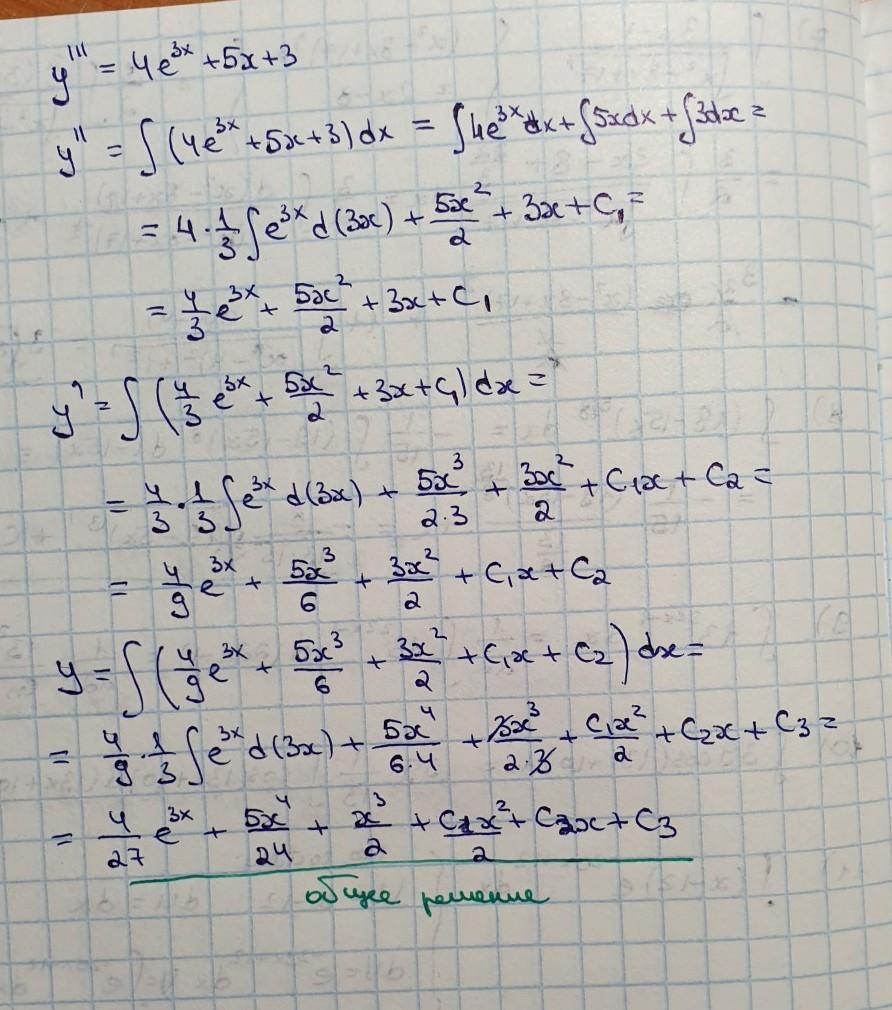 y''' = 4e^{3x} + 5x + 3
y'' = ∫(4e^{3x} + 5x + 3)dx = ∫4e^{3x}dx + ∫5xdx + ∫3dx =
= 4 · \frac{1}{3}∫e^{3x} d(3x) + \frac{5x^2}{2} + 3x + C_1 =
= \frac{4}{3}e^{3x} + \frac{5x^2}{2} + 3x + C_1
y' = ∫(\frac{4}{3}e^{3x} + \frac{5x^2}{2} + 3x + C_1)dx =
= \frac{4}{3} · \frac{1}{3}∫e^{3x} d(3x) + \frac{5x^3}{2·3} + \frac{3x^2}{2} + C_1x + C_2 =
= \frac{4}{9}e^{3x} + \frac{5x^3}{6} + \frac{3x^2}{2} + C_1x + C_2
y = ∫(\frac{4}{9}e^{3x} + \frac{5x^3}{6} + \frac{3x^2}{2} + C_1x + C_2)dx =
= \frac{4}{9} · \frac{1}{3}∫e^{3x} d(3x) + \frac{5x^4}{6·4} + \frac{3x^3}{2·3} + \frac{C_1x^2}{2} + C_2x + C_3 =
= \frac{4}{27}e^{3x} + \frac{5x^4}{24} + \frac{x^3}{2} + \frac{C_1x^2}{2} + C_2x + C_3
общее решение